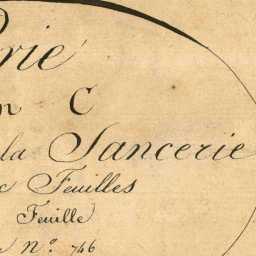 rie
n C
la Sancerie
c Feuilles
Feuille
e Nº. 746